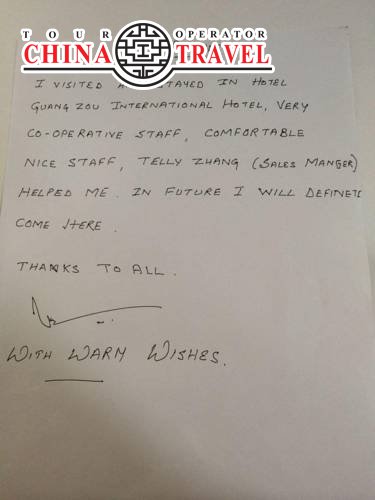 TOUR OPERATOR
CHINA TRAVEL
I VISITED AND STAYED IN HOTEL
GUANG ZOU INTERNATIONAL HOTEL, VERY
CO-OPERATIVE STAFF, COMFORTABLE
NICE STAFF, TELLY ZHANG (SALES MANGER)
HELPED ME. IN FUTURE I WILL DEFINETE
COME HERE.
THANKS TO ALL.
WITH WARM WISHES.